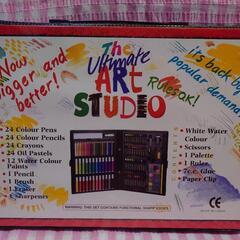 Now bigger and better!
The Ultimate ART STUDIO
Rulesok!
its back by popular demand
• 24 Colour Pens
• 24 Colour Pencils
• 24 Crayons
• 24 Oil Pastels
• 12 Water Colour Paints
• 1 Pencil
• 1 Brush
• 1 Eraser
• 2 Sharpeners
• White Water Colour
• Scissors
• 1 Palette
• 1 Ruler
• 7c.c. Glue
• Paper Clip
WARNING: THIS SET CONTAINS FUNCTIONAL SHARP EDGES
CE